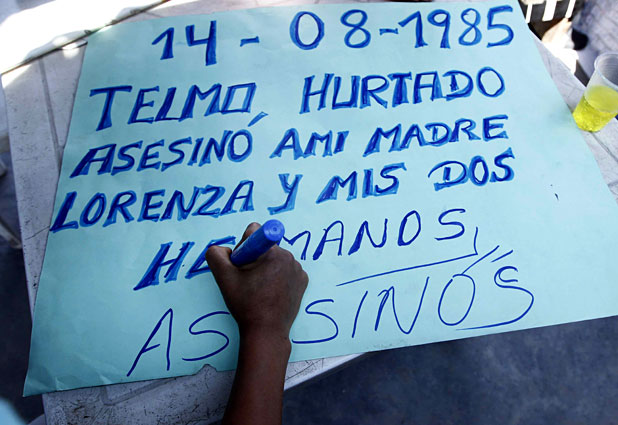 14 - 08 - 1985
TELMO HURTADO
ASESINÓ AMI MADRE
LORENZA Y MIS DOS
HERMANOS,
ASESINÓS